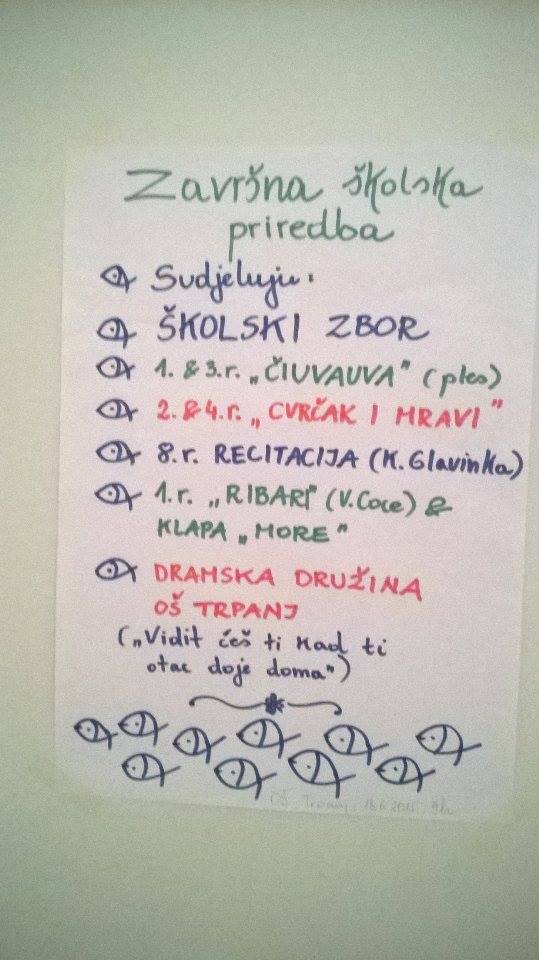 Završna školska
priredba
Sudjeluju:
ŠKOLSKI ZBOR
1. & 3.r. „ČIUVAUVA" (ples)
2. & 4.r. „CVRČAK I MRAVI"
8.r. RECITACIJA (K. Glavinka)
1.r. „RIBARI" (V. Coce) &
KLAPA „MORE"
DRAMSKA DRUŽINA
OŠ TRPANJ
(„Vidit ćeš ti kad ti
otac doje doma")
OŠ Trpanj, 9h